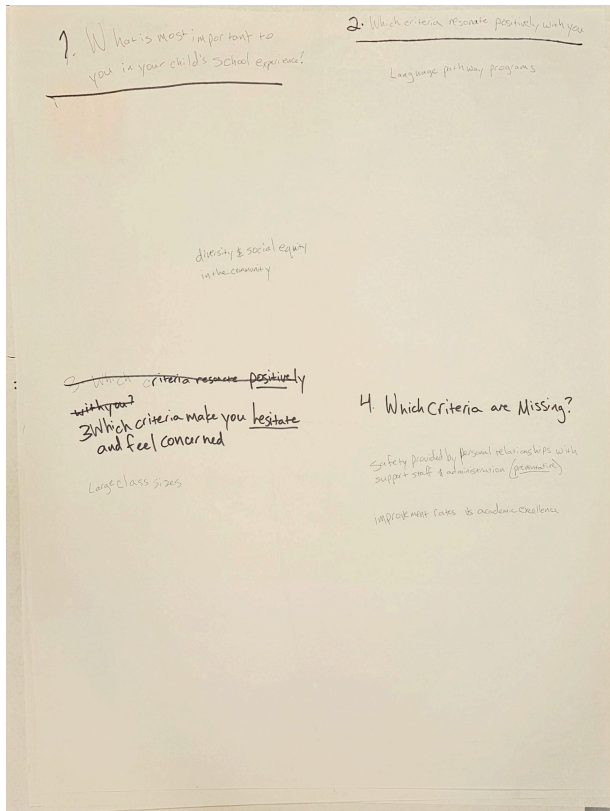 1. What is most important to
you in your child's school experience?
2. Which criteria resonate positively with you
Language pathway programs
diversity & social equity
in the community
3 Which criteria resonate positively
with you?
3 Which criteria make you hesitate
and feel concerned
Large class sizes
4. Which Criteria are Missing?
Safety provided by personal relationships with
support staff & administration (preventative)
improvement rates vs academic excellence